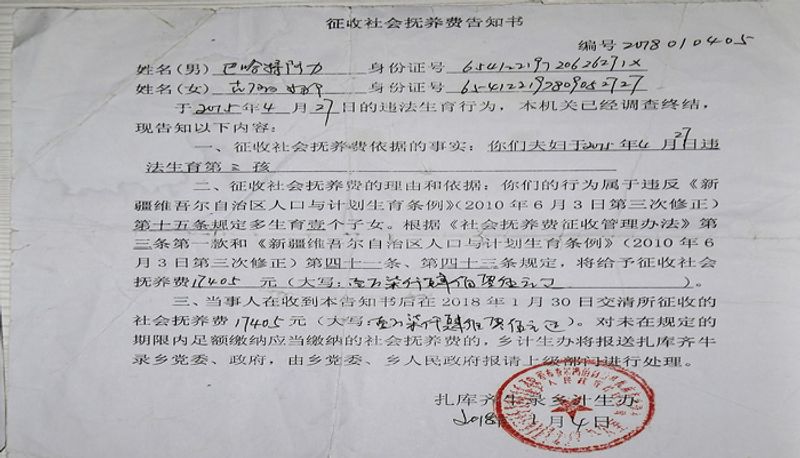 征收社会抚养费告知书
编号2018010405
姓名(男) 巴哈提阿力 身份证号
姓名(女) 身份证号
于2015年4月27日的违法生育行为，本机关已经调查终结，
现告知以下内容：
一、征收社会抚养费依据的事实：你们夫妇于2015年4月27日违
法生育第三孩
二、征收社会抚养费的理由和依据：你们的行为属于违反《新
疆维吾尔自治区人口与计划生育条例》(2010年6月3日第三次修正)
第十五条规定多生育壹个子女。根据《社会抚养费征收管理办法》第
三条第一款和《新疆维吾尔自治区人口与计划生育条例》(2010年6
月3日第三次修正)第四十一条、第四十三条规定，将给予征收社会
抚养费17405元(大写：柒仟肆佰 )。
三、当事人在收到本告知书后在2018年1月30日交清所征收的
社会抚养费17405元(大写：柒仟肆佰 )。对未在规定的
期限内足额缴纳应当缴纳的社会抚养费的，乡计生办将报送扎库齐牛
录乡党委、政府，由乡党委、乡人民政府报请上级部门进行处理。
扎库齐牛录乡计生办
2018年1月4日